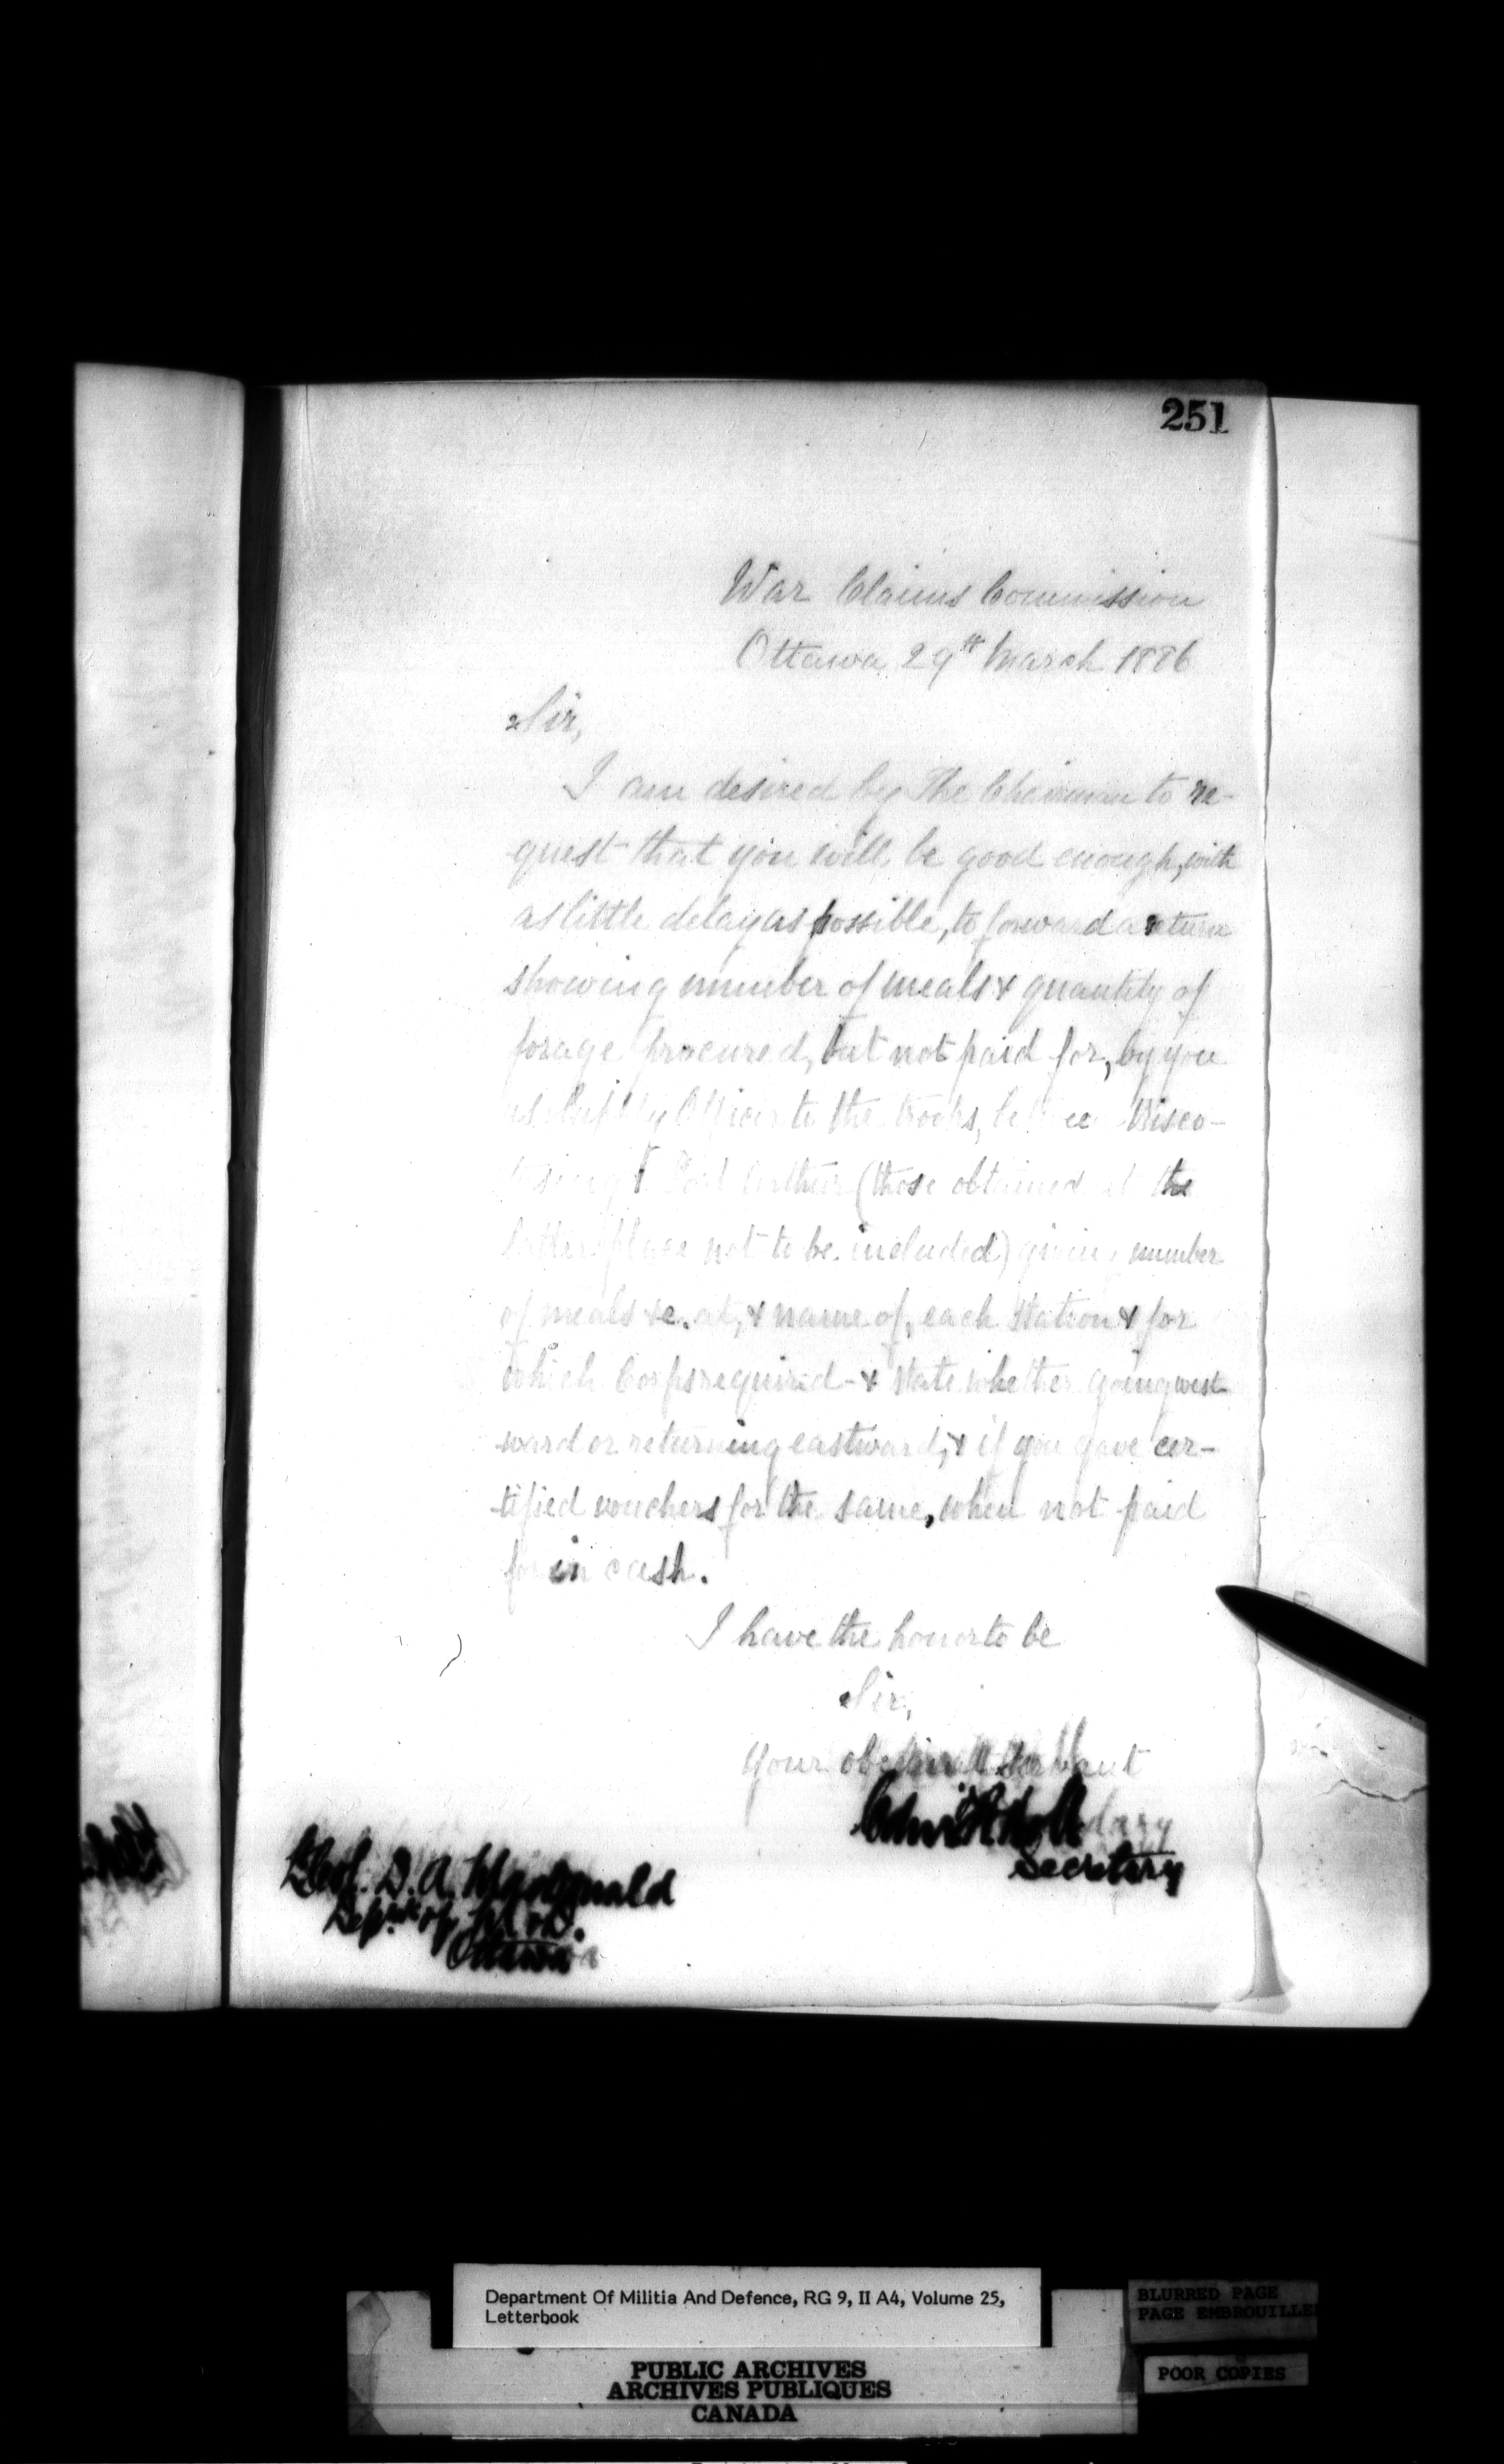 251
War Claims Commission
Ottawa 29th March 1886
Sir,
I am desired by The Chairman to re-
quest that you will be good enough, with
as little delay as possible, to forward a return
showing number of meals & quantity of
forage procured, but not paid for, by you
as Supply Officer to the troops, between Bisco-
tasing & Port Arthur (those obtained at the
latter place not to be included) giving number
of meals &c. at, & name of, each station & for
which Corps required - & state whether going west-
ward or returning eastward, & if you gave cer-
tified vouchers for the same, when not paid
for in cash.
I have the honor to be
Sir,
Your obedient Servant
Secretary
D. A. Macdonald
Ottawa
Department Of Militia And Defence, RG 9, II A4, Volume 25,
Letterbook
BLURRED PAGE
PAGE EMBROUILLE
PUBLIC ARCHIVES
ARCHIVES PUBLIQUES
CANADA
POOR COPIES